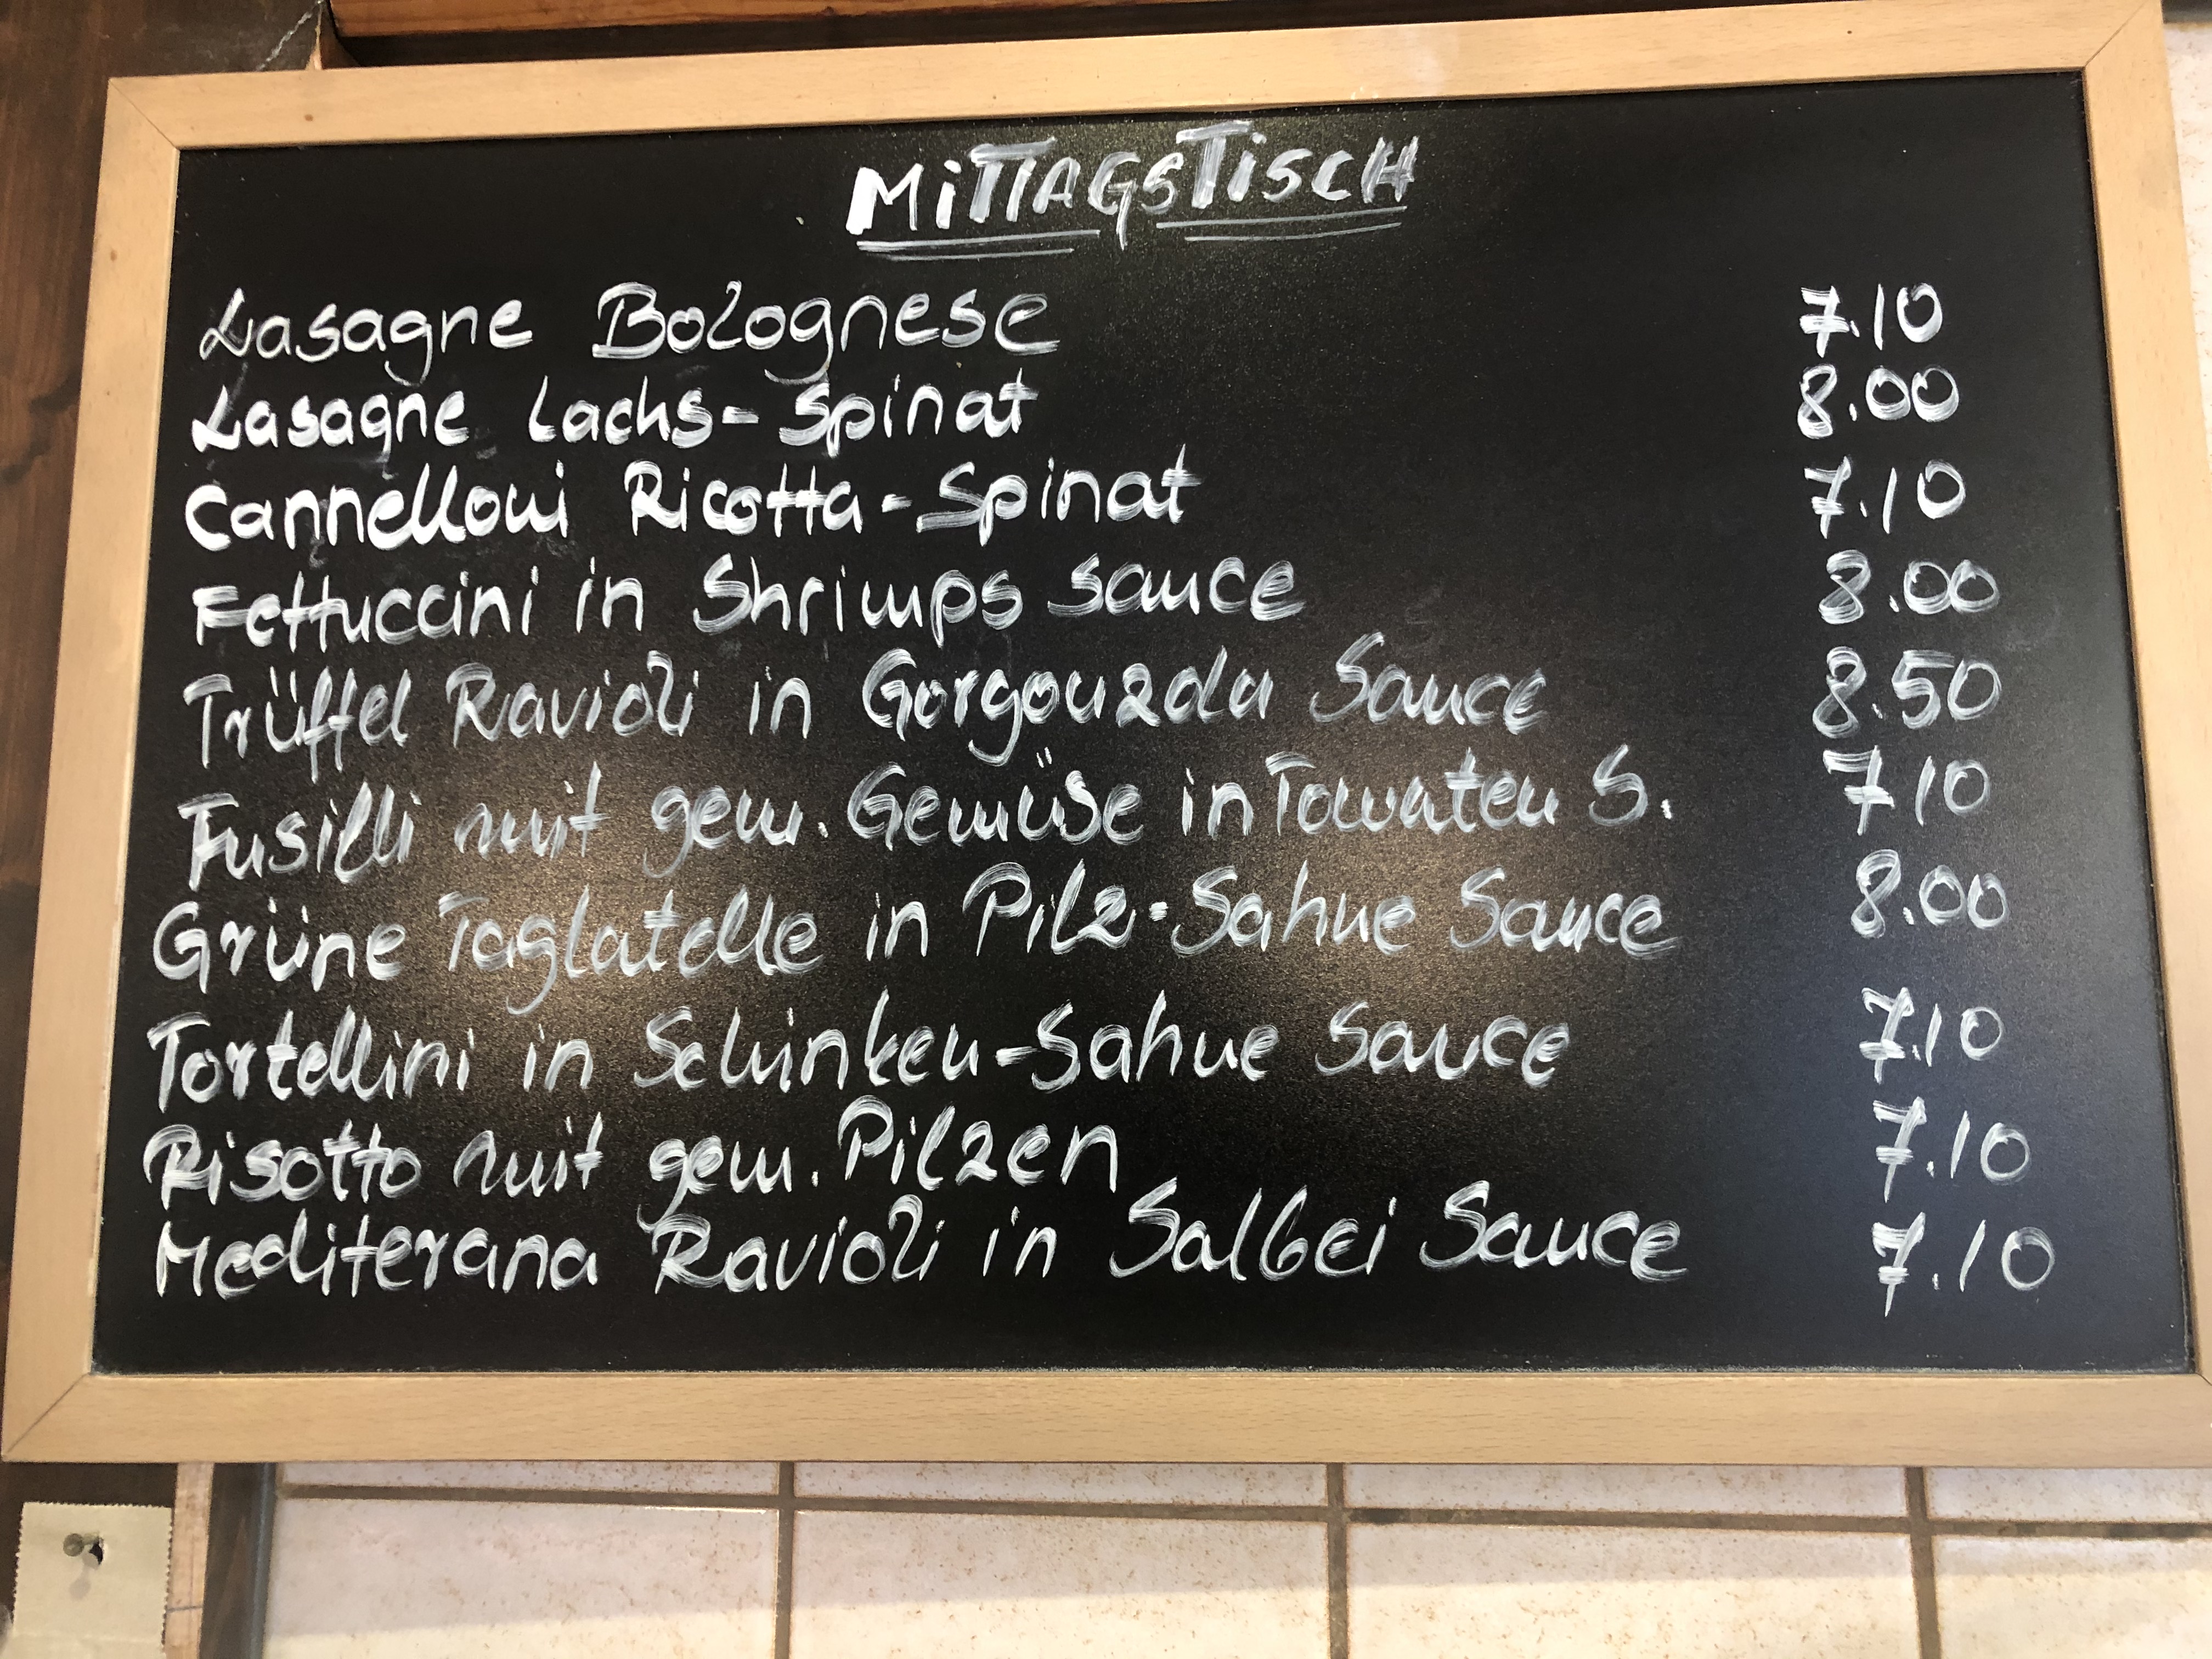 MiTTAGSTiSCH
Lasagne Bolognese 7.10
Lasagne Lachs-Spinat 8.00
Cannelloni Ricotta-Spinat 7.10
Fettuccini in Shrimps sauce 8.00
Trüffel Ravioli in Gorgonzola Sauce 8.50
Fusilli mit gem. Gemüse in Tomaten S. 7 10
Grüne Taglatelle in Pilz-Sahne Sauce 8.00
Tortellini in Schinken-Sahne Sauce 7.10
Risotto mit gem. Pilzen 7.10
Mediterana Ravioli in Salbei Sauce 7.10